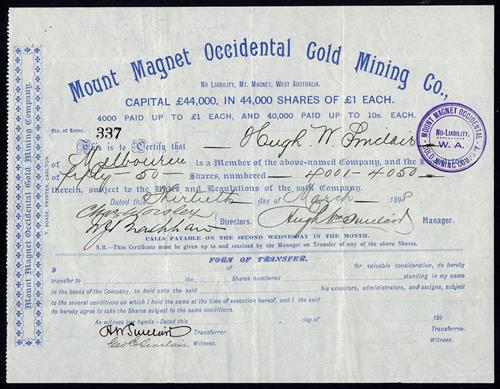 Mount Magnet Occidental Gold Mining Co.,
No Liability, Mt. Magnet, West Australia.
CAPITAL £44,000, IN 44,000 SHARES OF £1 EACH.
4000 PAID UP TO £1 EACH, AND 40,000 PAID UP TO 10s. EACH.
No. of Scrip. 337
This is to Certify that Hugh W. Sinclair
of Melbourne is a Member of the above-named Company, and the
fifty 50 Shares, numbered 4001-4050
therein, subject to the Rules and Regulations of the said Company.
Dated Thirtieth day of March 1898
Directors. Hugh Wm Sinclair Manager.
CALLS PAYABLE ON THE SECOND WEDNESDAY IN THE MONTH.
N.B.—This Certificate must be given up to and retained by the Manager on Transfer of any of the above Shares.
FORM OF TRANSFER.
of for valuable consideration, do hereby
transfer to Shares numbered standing in my name
in the books of the Company, to hold unto the said his executors, administrators, and assigns, subject
to the several conditions on which I held the same at the time of execution hereof, and I the said
do hereby agree to take the Shares subject to the same conditions.
As witness our hands—Dated this day of 189
H W Sinclair Transferror. Transferree.
Geo C Sinclair Witness. Witness.
Mount Magnet Occidental Gold Mining Company.
T. SOARE, PRINTER, CARLTON.
MOUNT MAGNET OCCIDENTAL GOLD MINING CO.
NO-LIABILITY.
W. A.